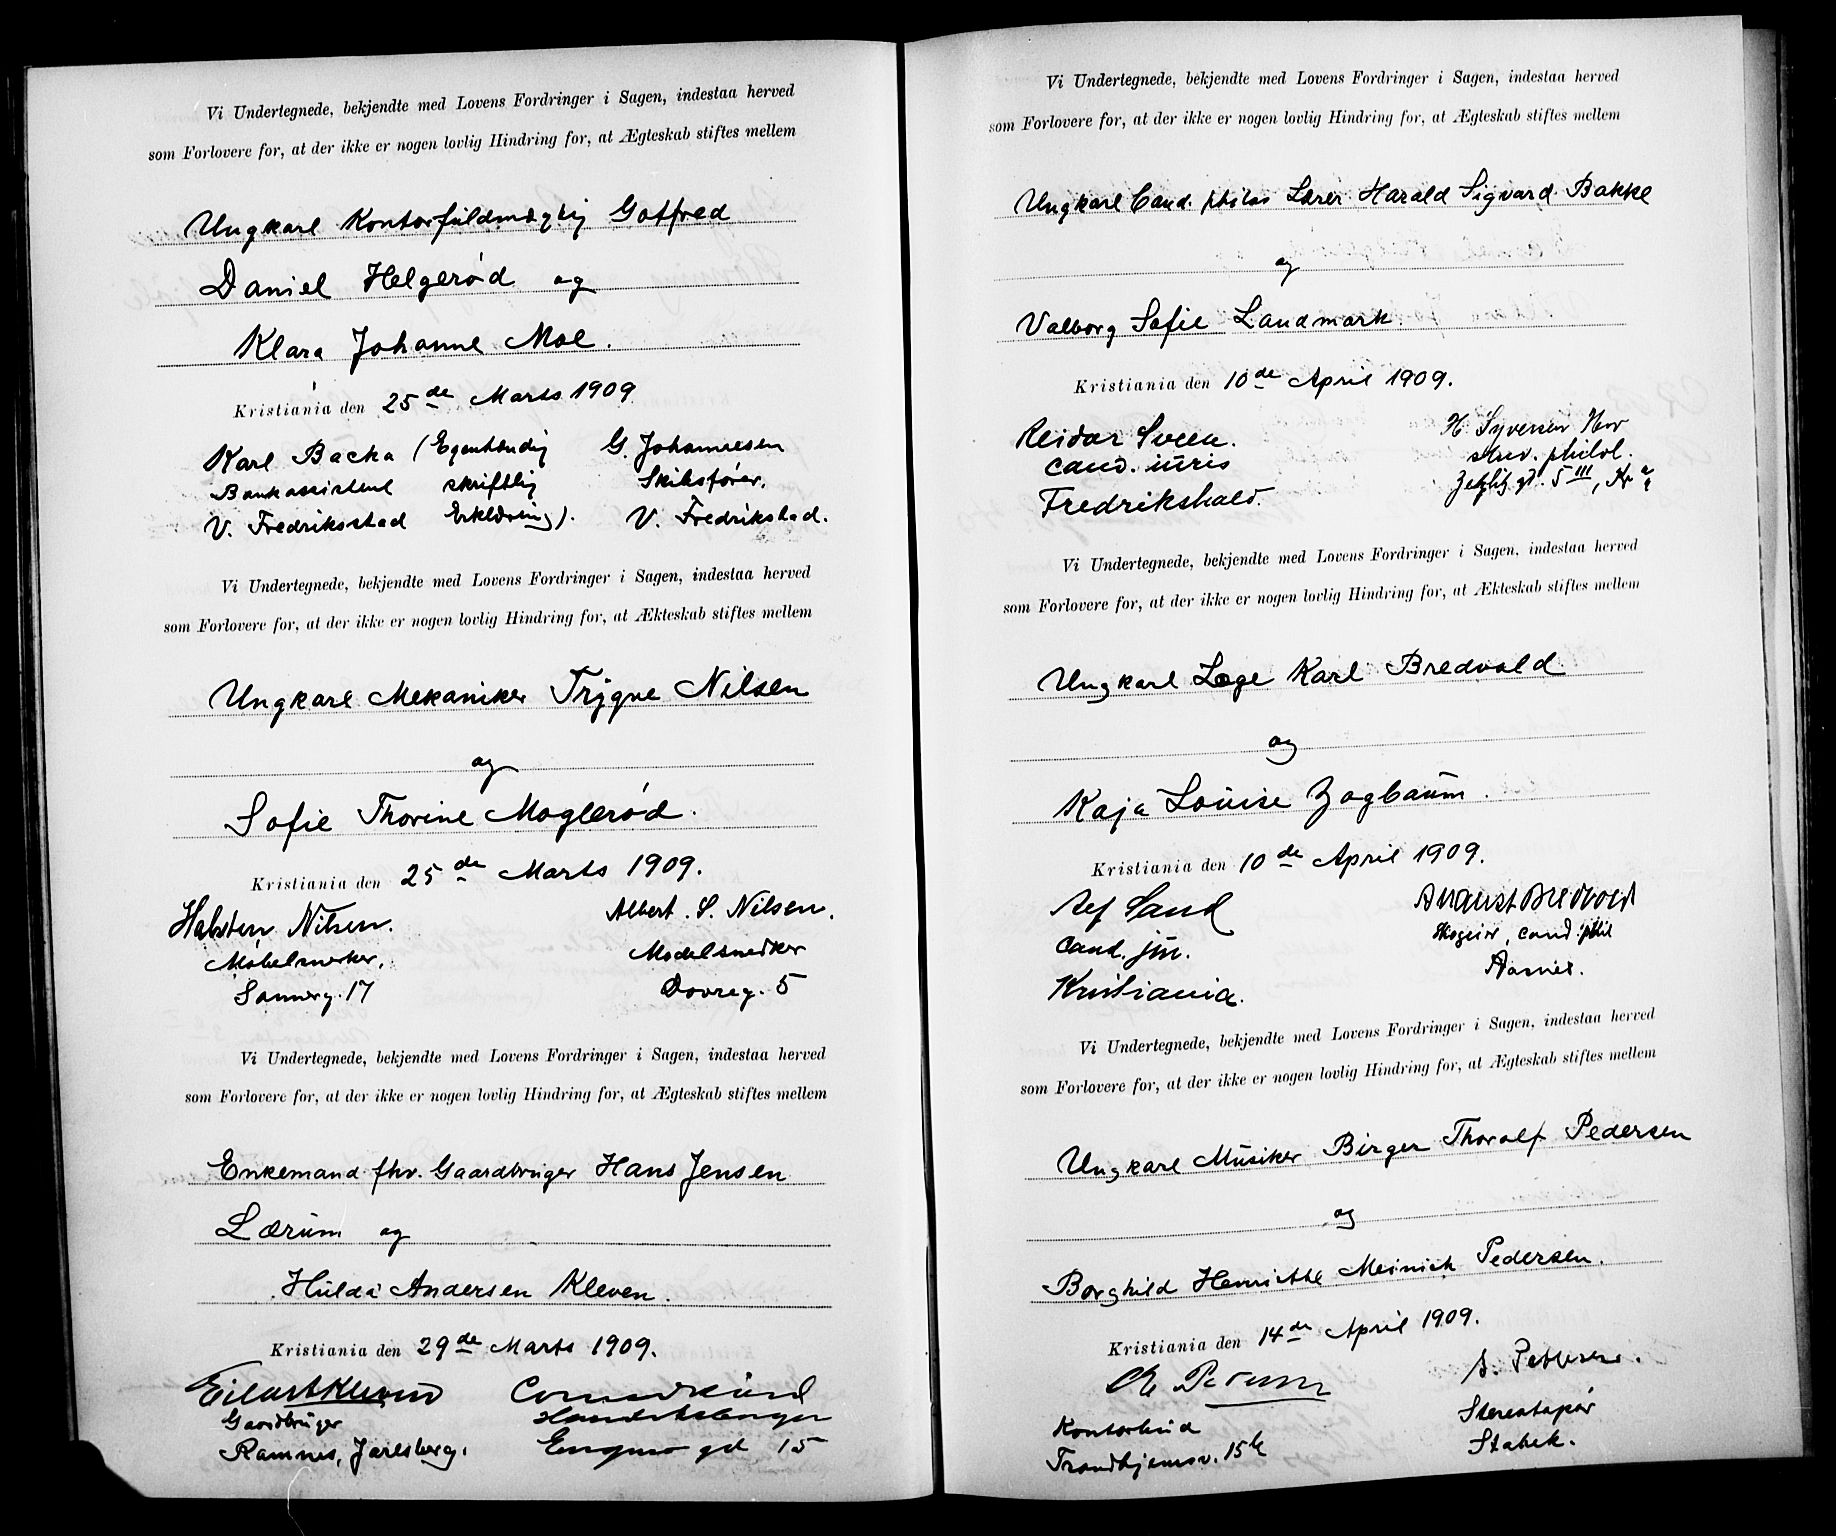 Vi Undertegnede, bekjendte med Lovens Fordringer i Sagen, indestaa herved
som Forlovere for, at der ikke er nogen lovlig Hindring for, at Ægteskab stiftes mellem
Ungkarl Kontorfuldmægtig Gotfred
Daniel Helgerød og
Klara Johanne Moe.
Kristiania den 25de Marts 1909
Karl Backa (Egenhændig
Bankassistent skriftlig
V. Fredriksstad Erklæring).
G. Johannesen
Skibsfører.
V. Fredrikstad.
Vi Undertegnede, bekjendte med Lovens Fordringer i Sagen, indestaa herved
som Forlovere for, at der ikke er nogen lovlig Hindring for, at Ækteskab stiftes mellem
Ungkarl Mekaniker Trygve Nilsen
og
Sofie Thorine Moglerød.
Kristiania den 25de Marts 1909.
Halsten Nilsen.
Møbelsnerker,
Sannerg. 17
Albert. S. Nilsen.
Modelsnedker
Dovreg. 5
Vi Undertegnede, bekjendte med Lovens Fordringer i Sagen, indestaa herved
som Forlovere for, at der ikke er nogen lovlig Hindring for, at Ægteskab stiftes mellem
Enkemand fhv. Gaardbruger Hans Jensen
Lærum og
Hulda Andersen Kleven.
Kristiania den 29de Marts 1909.
Eilert Kleven
Gardbruger
Ramnes, Jarlsberg.
gd 15
Vi Undertegnede, bekjendte med Lovens Fordringer i Sagen, indestaa herved
som Forlovere for, at der ikke er nogen lovlig Hindring for, at Ægteskab stiftes mellem
Ungkarl Cand. philos Lærer Harald Sigvard Bakke
og
Valborg Sofie Landmark.
Kristiania den 10de April 1909.
Reidar Sveen.
cand. iuris
Fredrikshald.
H. Syversen
stud. philol.
gt. 5 III, Kr a
Vi Undertegnede, bekjendte med Lovens Fordringer i Sagen, indestaa herved
som Forlovere for, at der ikke er nogen lovlig Hindring for, at Ækteskab stiftes mellem
Ungkarl Læge Karl Bredvold
og
Kaja Louise Zogbaum.
Kristiania den 10de April 1909.
Sand
cand. jur.
Kristiania.
August Bredvold
cand. phil
Vi Undertegnede, bekjendte med Lovens Fordringer i Sagen, indestaa herved
som Forlovere for, at der ikke er nogen lovlig Hindring for, at Ægteskab stiftes mellem
Ungkarl Musiker Birger Thoralf Pedersen
og
Borghild Henriette Meinich Pedersen.
Kristiania den 14de April 1909.
Kontorbud
Trondhjemsv. 15
A. Pettersen.
Stereotapør
Stabek.